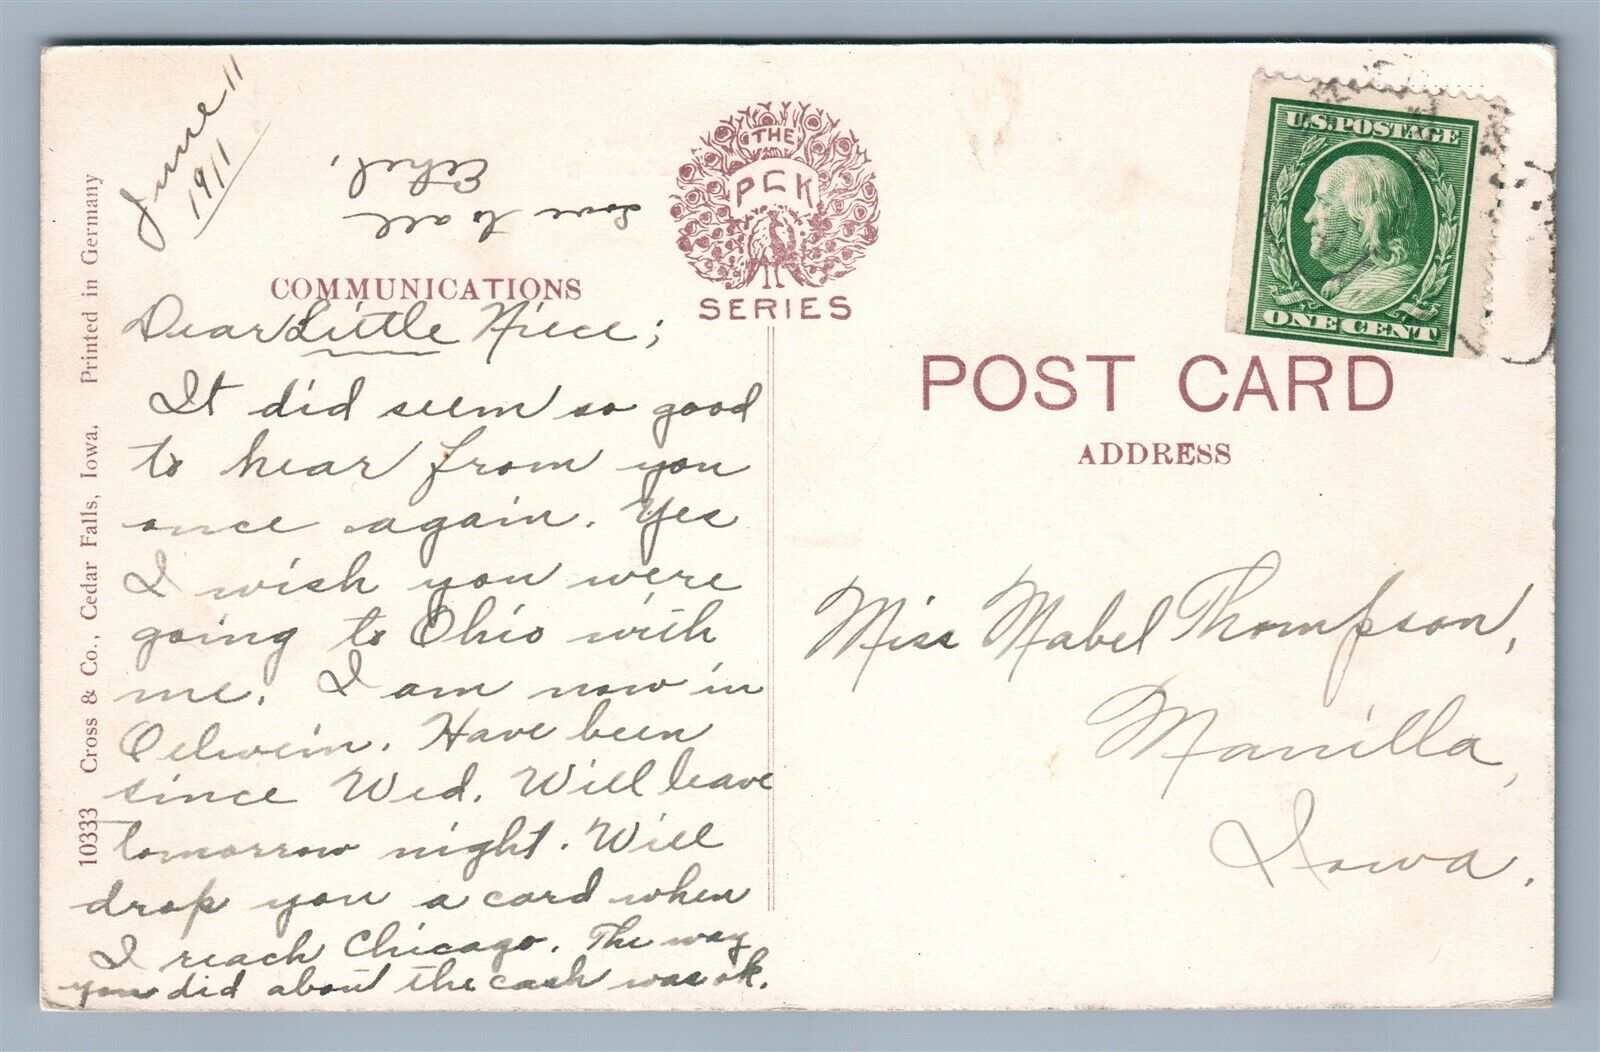 June 11
1911
Love to all
Ethel,
THE
PCK
SERIES
U.S. POSTAGE
ONE CENT
COMMUNICATIONS
POST CARD
ADDRESS
Dear Little Niece;
It did seem so good
to hear from you
once again. Yes
I wish you were
going to Ohio with
me. I am now in
Oelwein. Have been
since Wed. Will leave
tomorrow night. Will
drop you a card when
I reach Chicago. The way
you did about the cash was ok.
Miss Mabel Thompson,
Manilla,
Iowa.
10333 Cross & Co., Cedar Falls, Iowa, Printed in Germany